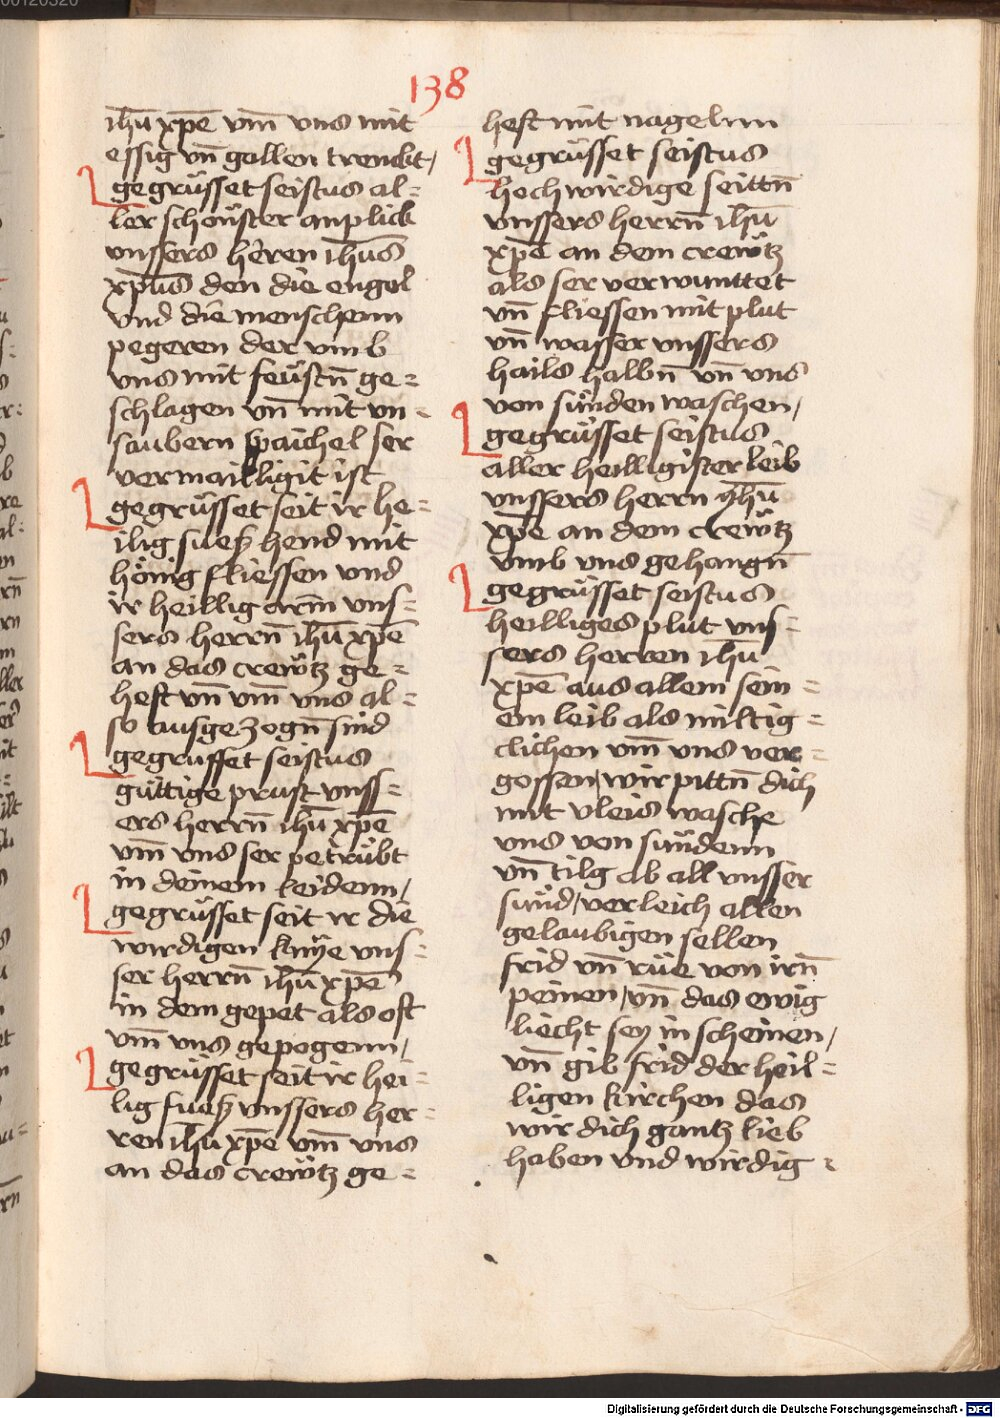 138
ihũ xp̃e vm̃ vns mit
essig vñ gallen trenckt /
gegrüsset seistus al=
ler schönster anplick
vnssers heren ihũs
xp̃us den die engel
vnd die menschenn
pegeren der vmb
vns mit feüstñ ge=
schlagen vñ mit vn=
saubern spaichel ser
vermailligit ist
gegrüsset seit ir he=
ilig sueß hend mit
hönig fliessen vnd
ir heillig arm̃ vns=
sers herrñ ihũ xp̃e
an das crewtz ge=
heft vñ vm̃ vns al=
so ausgezogñ sind
gegrusset seistus
güttige prust vnss=
ers herrñ ihũ xp̃e
vm̃ vns ser petrübt
in deinem leidenn /
gegrüsset seit ir die
wirdigen knÿe vns=
ser herrñ ihũ xp̃e
in dem gepet als oft
vm̃ vns gepogenn /
gegrüsset seit ir hei=
lig fueß vnssers her=
ren ihũ xp̃e vm̃ vns
an das crewtz ge=
heft mit nagelnn
gegrüsset seistus
hochwirdige seittñ
vnssers herrñ ihũ
xp̃e an dem crewtz
als ser verwunttet
vñ fliessen mit plut
vñ wasser vnssers
hails halbñ vñ vns
von sünden waschen /
gegrüsset seistus
aller heilligister leib
vnssers herrn yhũ
xp̃e an dem crewtz
vmb vns gehangñ
gegrüsset seistus
heilliges plut vns=
sers herren ihũ
xp̃e aus allem sein=
em leib als miltig=
clichen vm̃ vns ver=
gossen / wir pittñ dich
mit vleis wasche
vns von sündenn
vñ tilg ab all vnsser
sünd / verleich allen
gelaubigen sellen
frid vñ rüe von irñ
peinen / vñ das ewig
liecht sey in scheinen /
vñ gib frid der heil=
ligen kirchen das
wir dich gantz lieb
haben vnd wirdig=
Digitalisierung gefördert durch die Deutsche Forschungsgemeinschaft - DFG